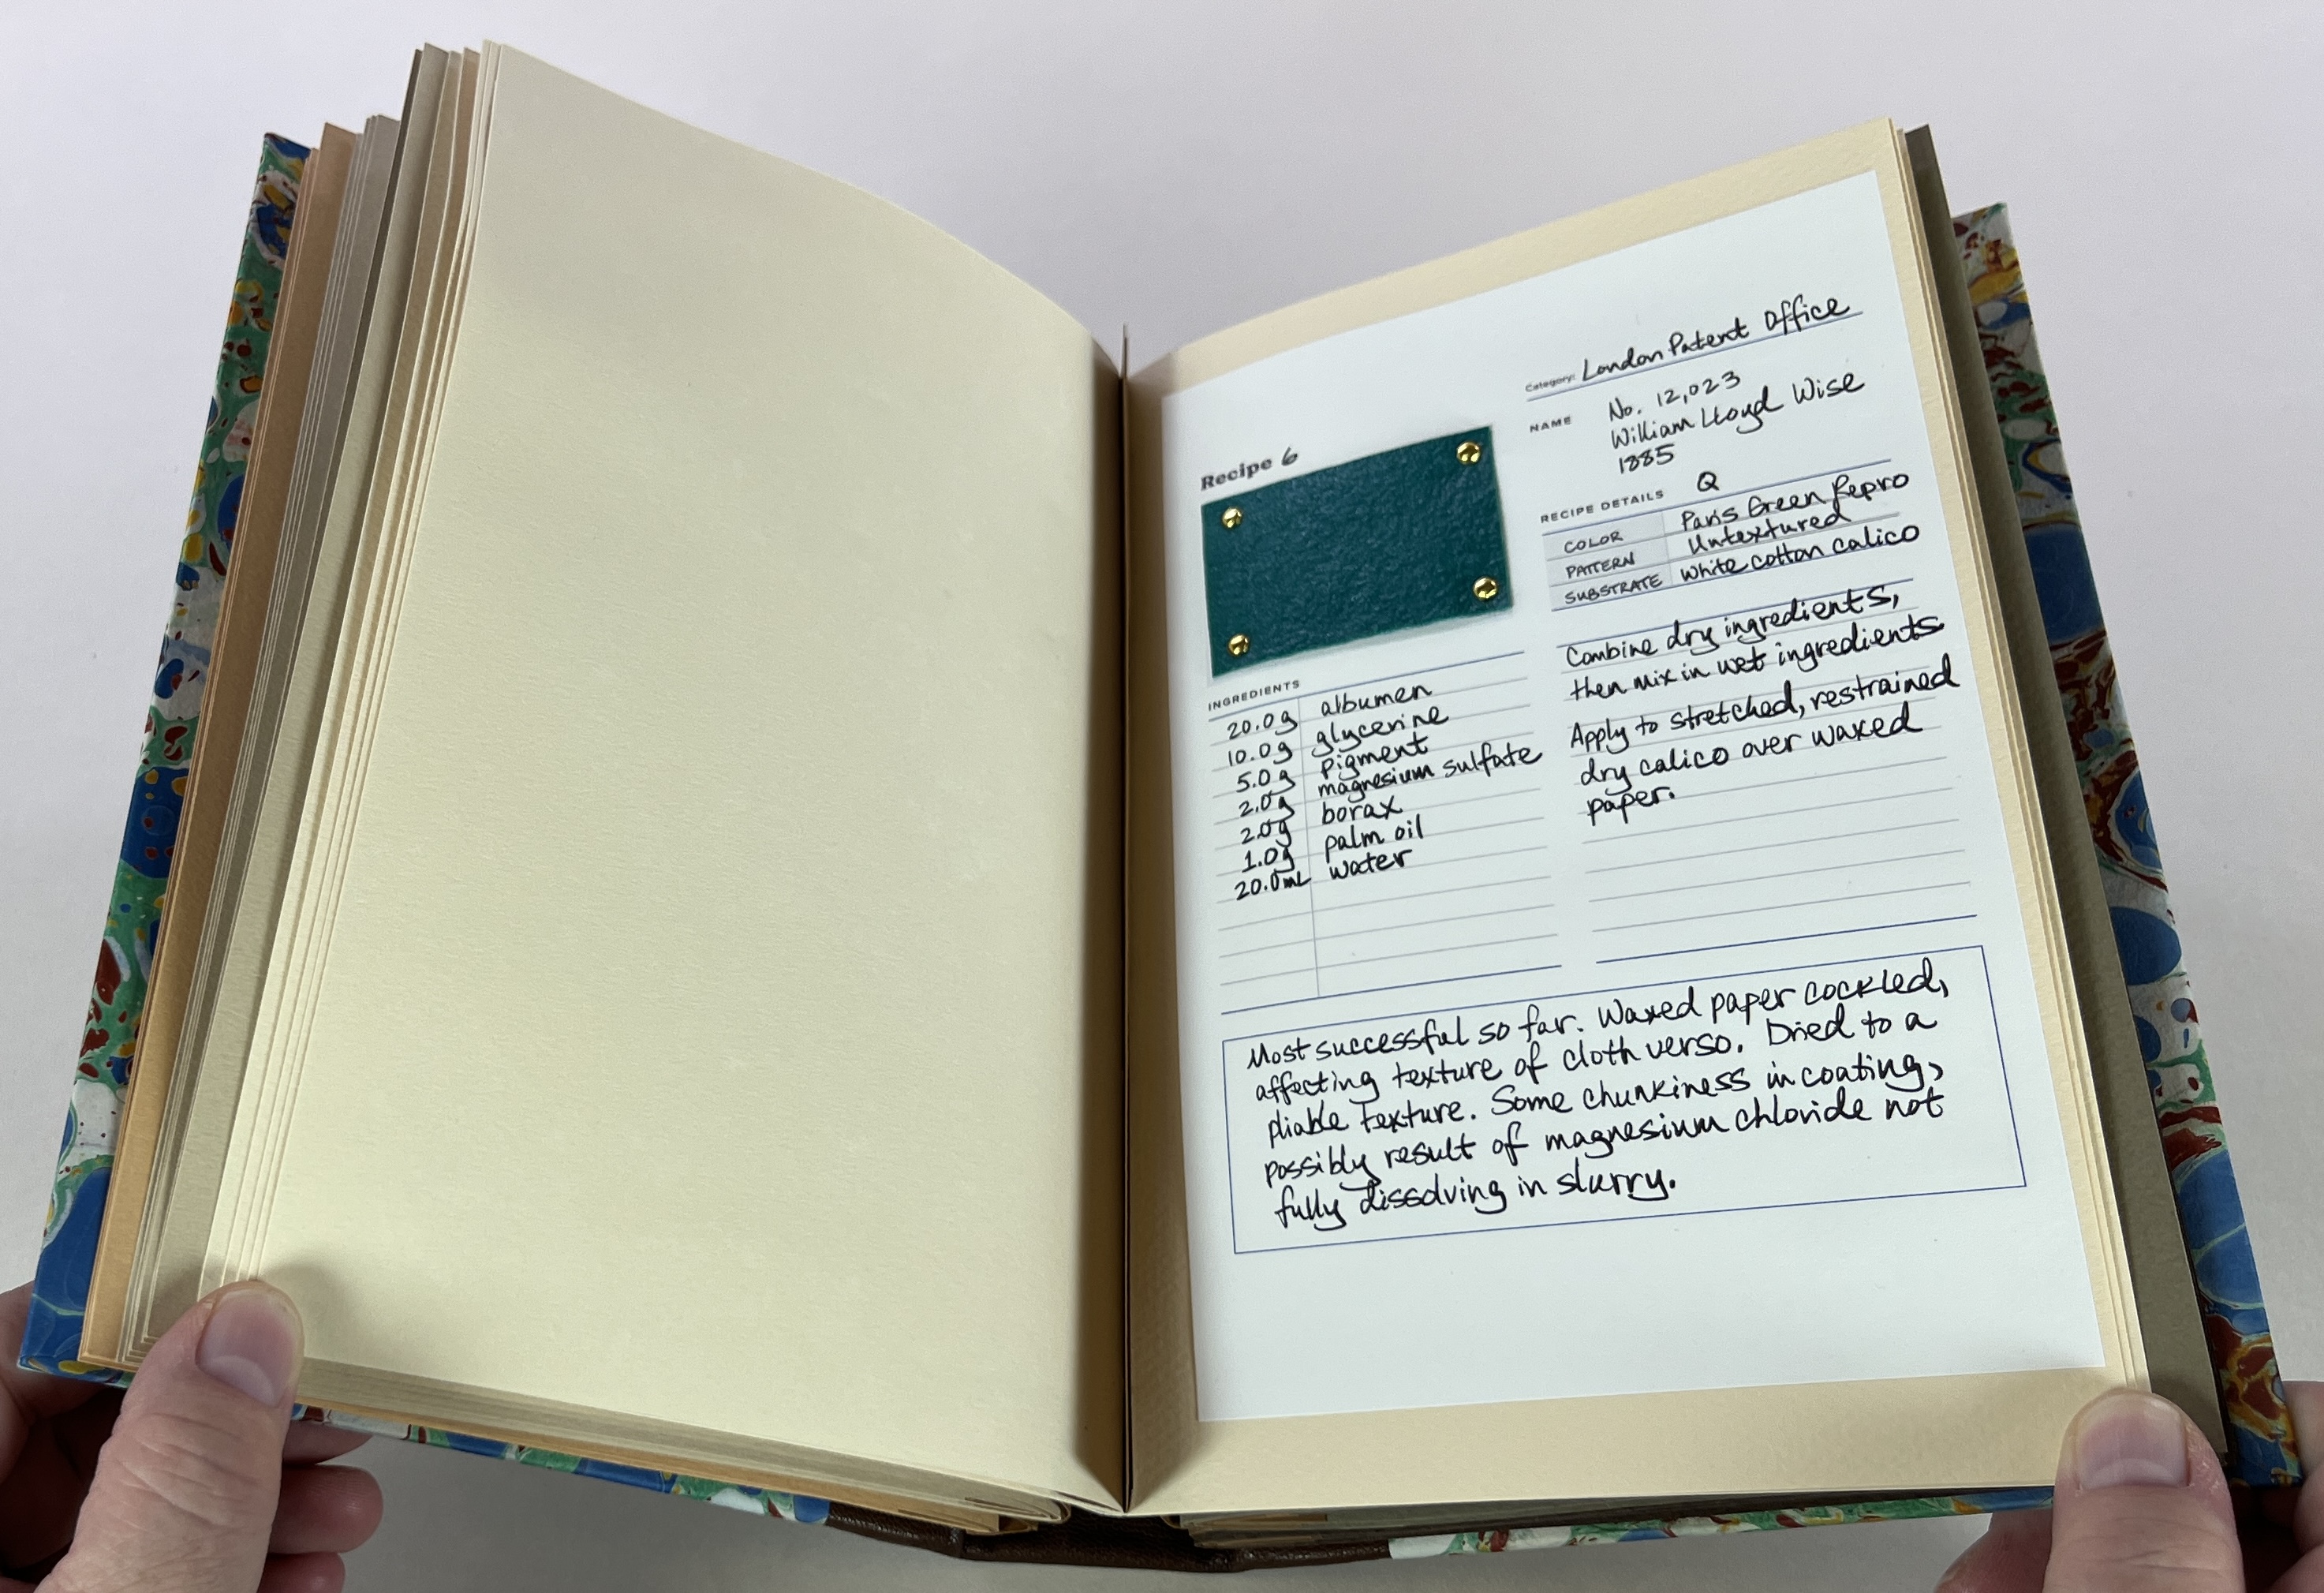 Category: London Patent Office
NAME No. 12,023
William Lloyd Wise
1885
Recipe 6
RECIPE DETAILS Q
COLOR Paris Green Repro
PATTERN Untextured
SUBSTRATE white cotton calico
INGREDIENTS
20.0g albumen
10.0g glycerine
5.0g pigment
2.0g magnesium sulfate
2.0g borax
1.0g palm oil
20.0mL water
Combine dry ingredients,
then mix in wet ingredients.
Apply to stretched, restrained
dry calico over waxed
paper.
Most successful so far. Waxed paper cockled,
affecting texture of cloth verso. Dried to a
pliable texture. Some chunkiness in coating,
possibly result of magnesium chloride not
fully dissolving in slurry.